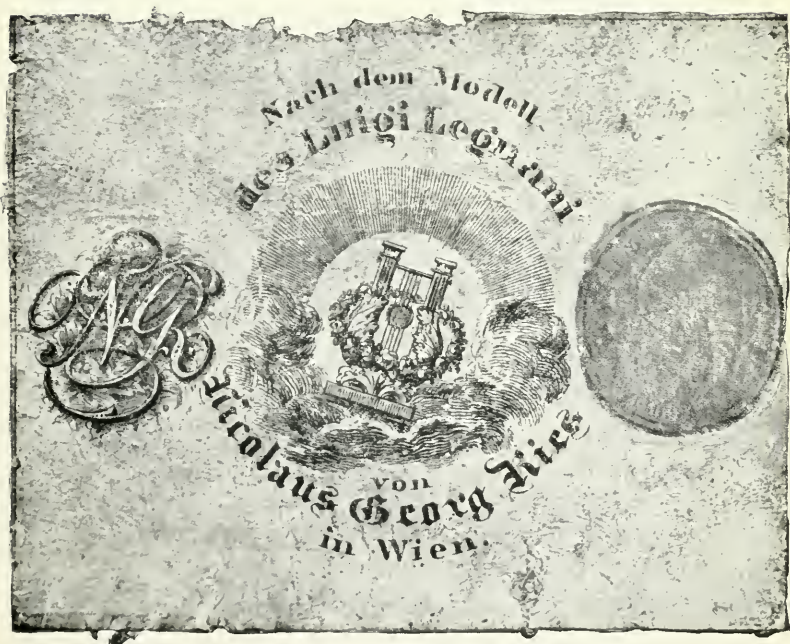 Nach dem Modell
des Luigi Legnani
NGR
von
Nicolaus Georg Ries
in Wien.